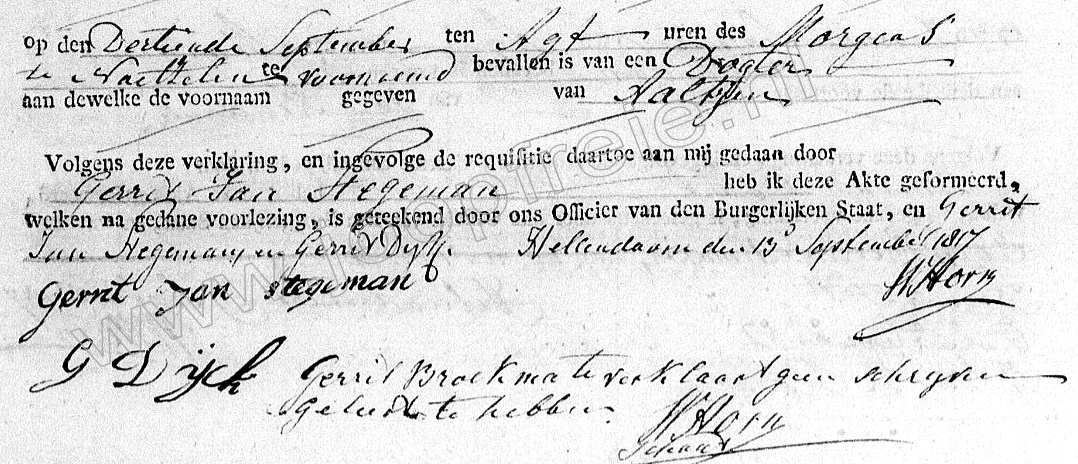 op den Dertiende September ten Agt uren des Morgens
te Noetzelen te voornoemd bevallen is van een Dogter
aan dewelke de voornaam gegeven van Aaltjen
Volgens deze verklaring, en ingevolge de requisitie daartoe aan mij gedaan door
Gerrit Jan Stegeman heb ik deze Akte geformeerd,
welken na gedane voorlezing, is geteekend door ons Officier van den Burgerlijken Staat, en Gerrit
Jan Stegeman en Gerrit Dyk. Hellendoorn den 13 September 1817
Gerrit Jan Stegeman W Horn
G Dijck Gerrit Broekmate verklaart geen schryven
geleerd te hebben W Horn
Schout